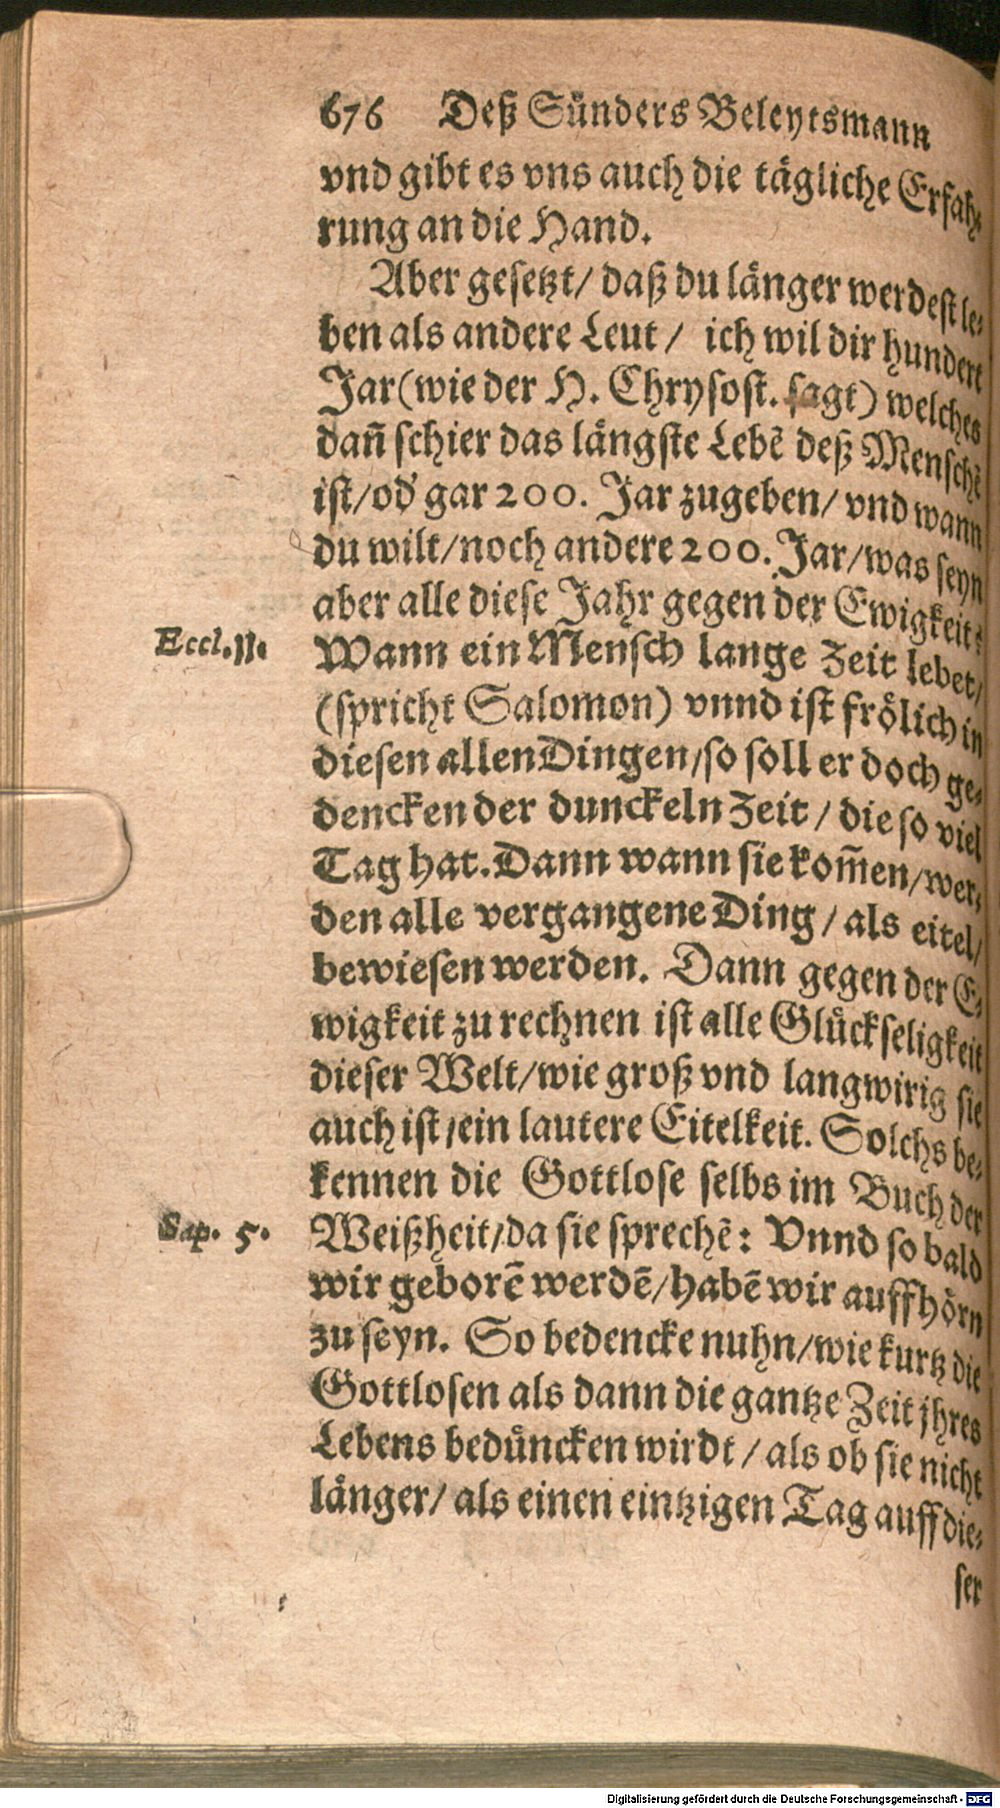 676 Deß Sünders Beleytsmann
vnd gibt es vns auch die tägliche Erfah-
rung an die Hand.
Aber gesetzt/ daß du länger werdest le-
ben als andere Leut/ ich wil dir hundert
Jar (wie der H. Chrysost. sagt) welches
dañ schier das längste Lebẽ deß Menschẽ
ist/ od' gar 200. Jar zugeben/ vnd wann
du wilt/ noch andere 200. Jar/ was seyn
aber alle diese Jahr gegen der Ewigkeit?
Eccl. 11.
Wann ein Mensch lange Zeit lebet/
(spricht Salomon) vnnd ist frölich in
diesen allen Dingen/ so soll er doch ge-
dencken der dunckeln Zeit/ die so viel
Tag hat. Dann wann sie kom̃en/ wer-
den alle vergangene Ding/ als eitel/
bewiesen werden. Dann gegen der E-
wigkeit zu rechnen ist alle Glückseligkeit
dieser Welt/ wie groß vnd langwirig sie
auch ist/ ein lautere Eitelkeit. Solchs be-
kennen die Gottlose selbs im Buch der
Sap. 5.
Weißheit/ da sie sprechẽ: Vnnd so bald
wir geborẽ werdẽ/ habẽ wir auffhörn
zu seyn. So bedencke nuhn/ wie kurtz die
Gottlosen als dann die gantze Zeit jhres
Lebens beduncken wirdt/ als ob sie nicht
länger/ als einen eintzigen Tag auff die-
ser
Digitalisierung gefördert durch die Deutsche Forschungsgemeinschaft - DFG